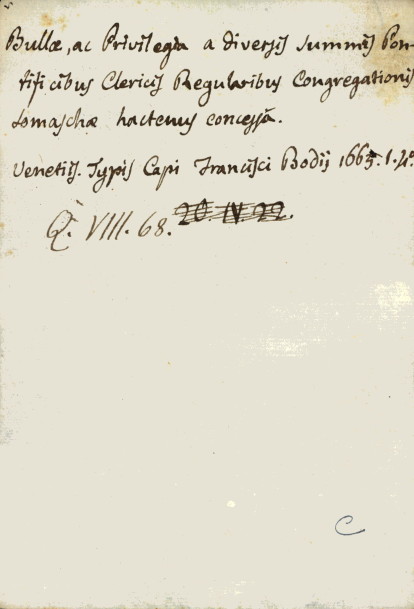 Bullæ, ac Privilegia a diversis summis Pon-
tificibus Clericis Regularibus Congregationis
Somaschæ hactenus concessa.
Venetiis. Typis Capi Francisci Bodij 1665. 1. 4º
Q. VIII. 68. 20. IV. 22.
C